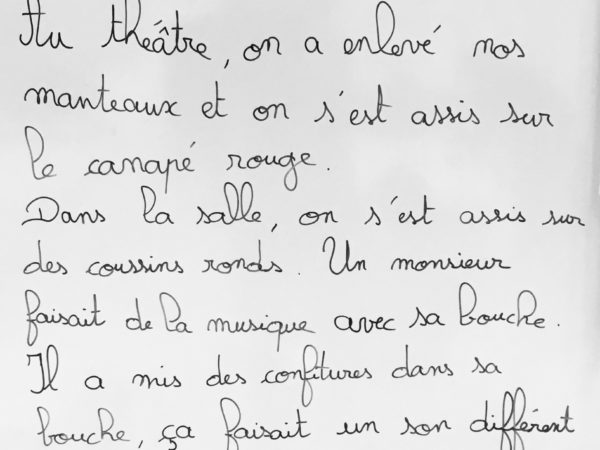 Au théâtre, on a enlevé nos
manteaux et on s'est assis sur
le canapé rouge.
Dans la salle, on s'est assis sur
des coussins ronds. Un monsieur
faisait de la musique avec sa bouche.
Il a mis des confitures dans sa
bouche, ça faisait un son différent